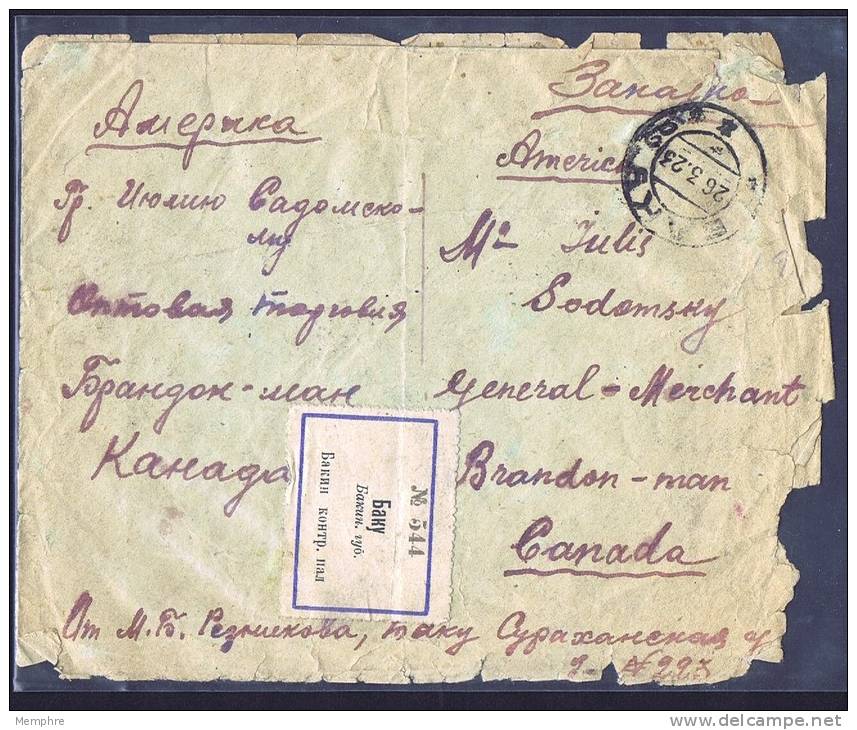 Заказно
Америка
Гр. Июлию Садомско-
му
Оптовая торговля
Брандон-ман
Канада
America
Mr Iulis
Sodomsky
General-Merchant
Brandon-man
Canada
26.3.23
№ 544
Баку
Бакин. губ.
Бакин контр. пал
От М.Б. Резникова, Баку Сураханская у
д. №223
Memphre
delcampe.net